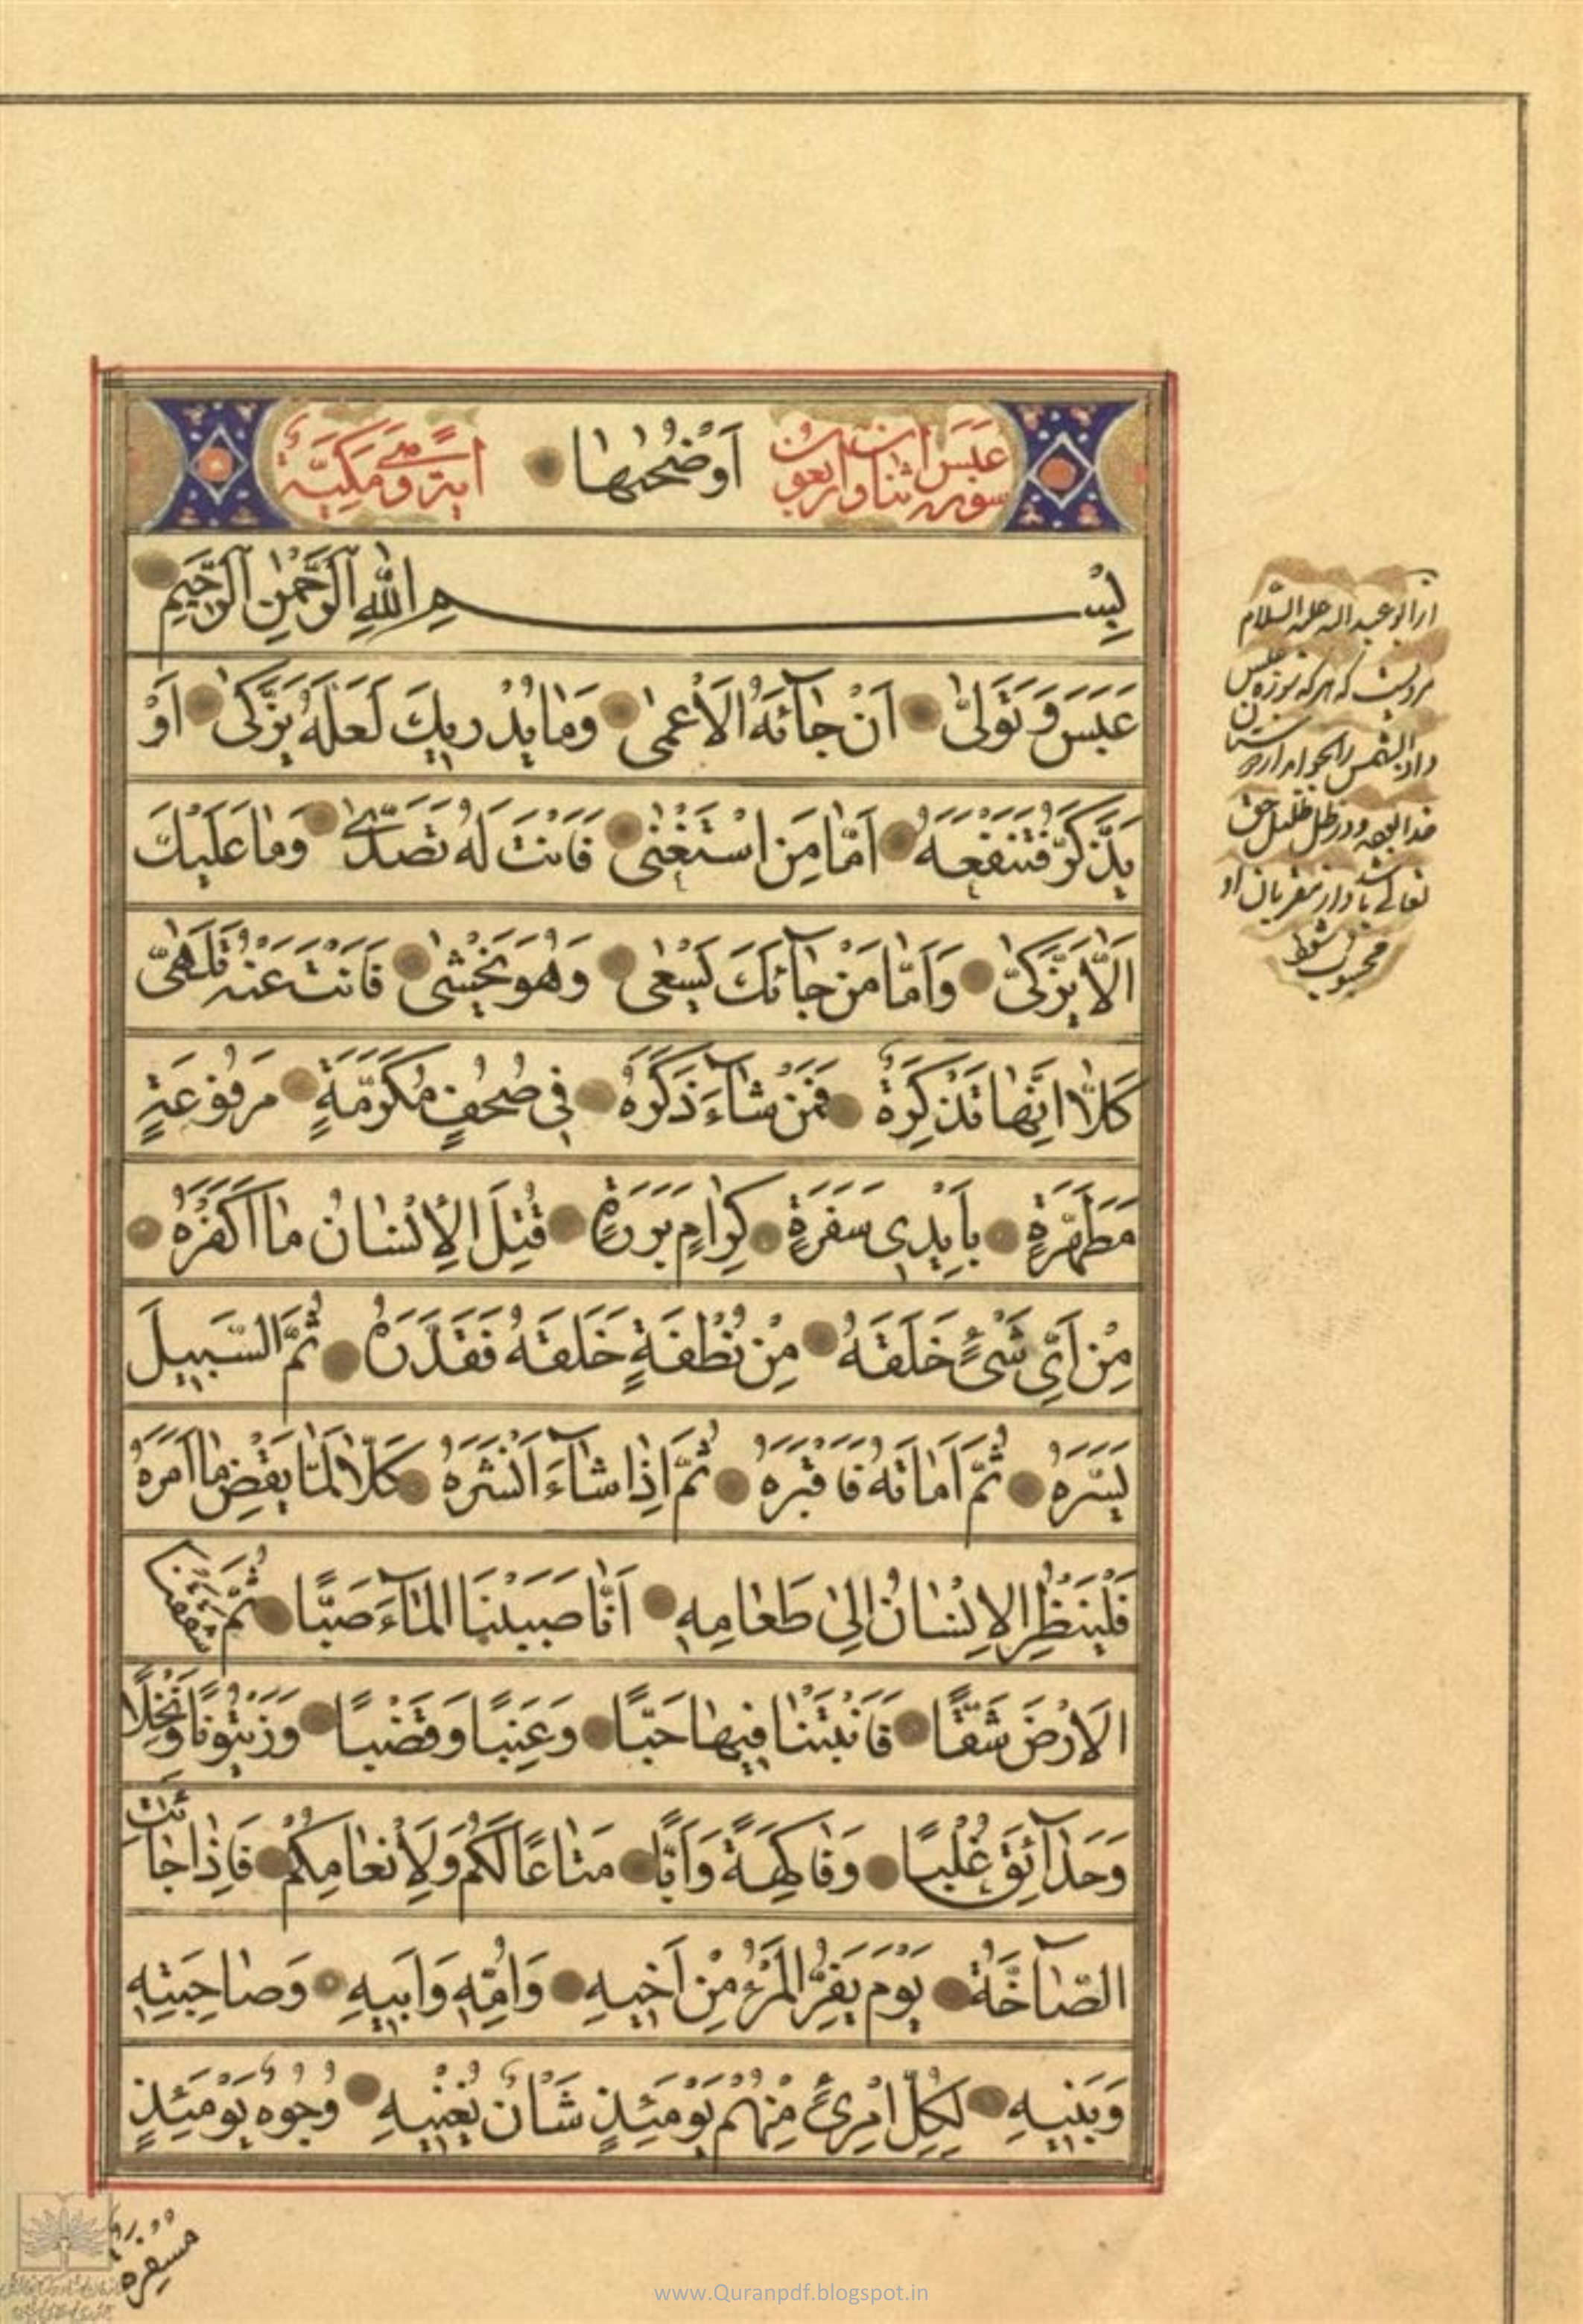 سورة عبس اثنان واربعون
اَوْضُحٰیهَا
ایة و مَكیَّةٌ
بِسْمِ اللّٰهِ الرَّحْمٰنِ الرَّحِیمِ
عَبَسَ وَ تَوَلّىٰ اَنْ جٰآئَهُ الْاَعْمىٰ وَمٰا یُدْریٖكَ لَعَلَّهُ یَزَّكّىٰ اَوْ
یَذَّكَّرُ فَتَنْفَعَهُ اَمّٰا مَنِ اسْتَغْنىٰ فَاَنْتَ لَهُ تَصَدّىٰ وَمٰا عَلَیْكَ
اَلّٰا یَزَّكّىٰ وَاَمّٰا مَنْ جٰآئَكَ یَسْعىٰ وَهُوَ یَخْشىٰ فَاَنْتَ عَنْهُ تَلَهّىٰ
كَلّٰا اِنَّهٰا تَذْكِرَةٌ فَمَنْ شٰآءَ ذَكَرَهُ فِی صُحُفٍ مُكَرَّمَةٍ مَرْفُوعَةٍ
مُطَهَّرَةٍ بِاَیْدِی سَفَرَةٍ كِرٰامٍ بَرَرَةٍ قُتِلَ الْاِنْسٰانُ مٰا اَكْفَرَهُ
مِنْ اَیِّ شَیْءٍ خَلَقَهُ مِنْ نُطْفَةٍ خَلَقَهُ فَقَدَّرَهُ ثُمَّ السَّبِیلَ
یَسَّرَهُ ثُمَّ اَمٰاتَهُ فَاَقْبَرَهُ ثُمَّ اِذٰا شٰآءَ اَنْشَرَهُ كَلّٰا لَمّٰا یَقْضِ مٰا اَمَرَهُ
فَلْیَنْظُرِ الْاِنْسٰانُ اِلىٰ طَعٰامِهِ اَنّٰا صَبَبْنَا الْمٰآءَ صَبًّا ثُمَّ شَقَقْنَا
الْاَرْضَ شَقًّا فَاَنْبَتْنٰا فِیهٰا حَبًّا وَ عِنَبًا وَ قَضْبًا وَ زَیْتُونًا وَ نَخْلًا
وَحَدٰآئِقَ غُلْبًا وَ فٰاكِهَةً وَ اَبًّا مَتٰاعًا لَكُمْ وَلِاَنْعٰامِكُمْ فَاِذٰا جٰآئَتِ
الصّٰآخَّةُ یَوْمَ یَفِرُّ الْمَرْءُ مِنْ اَخِیهِ وَاُمِّهِ وَ اَبِیهِ وَ صٰاحِبَتِهِ
وَ بَنِیهِ لِكُلِّ امْرِئٍ مِنْهُمْ یَوْمَئِذٍ شَأْنٌ یُغْنِیهِ وُجُوهٌ یَوْمَئِذٍ
مُسْفِرَةٌ
از ابو عبدالله علیه السّلام
مرویست که هر که سوره عبس
و اذا الشمس را بخواند در بوستان
خدا بود و در ظل ظلیل حق
تعالی باشد و از مقربان او
محسوب شود
www.Quranpdf.blogspot.in